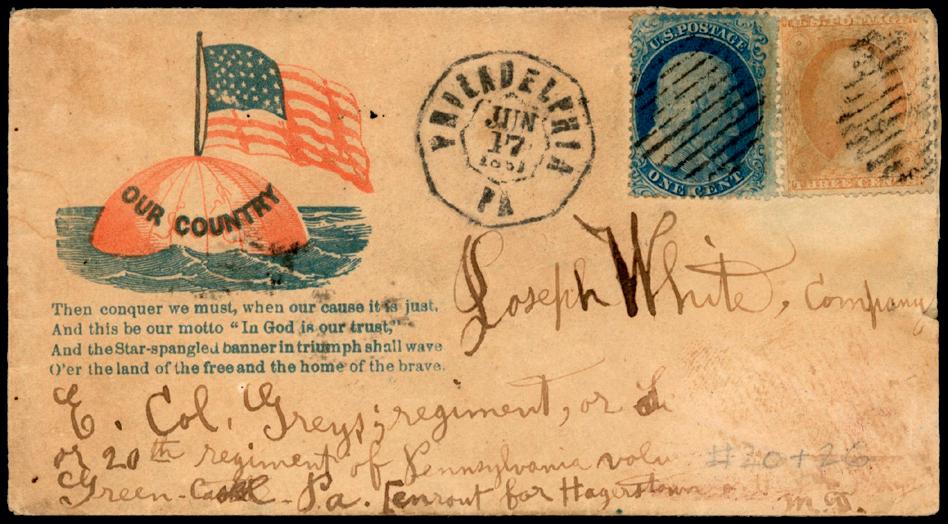 U.S. POSTAGE
ONE CENT
U.S. POSTAGE
THREE CENTS
PHILADELPHIA
JUN
17
1861
PA
OUR COUNTRY
Then conquer we must, when our cause it is just,
And this be our motto “In God is our trust,”
And the Star-spangled banner in triumph shall wave
O'er the land of the free and the home of the brave.
Joseph White, Company
E. Col. Greys; regiment, or
or 20th regiment of Pennsylvania volu
#20+26
Green-Castle - Pa. [enrout for Hagerstown